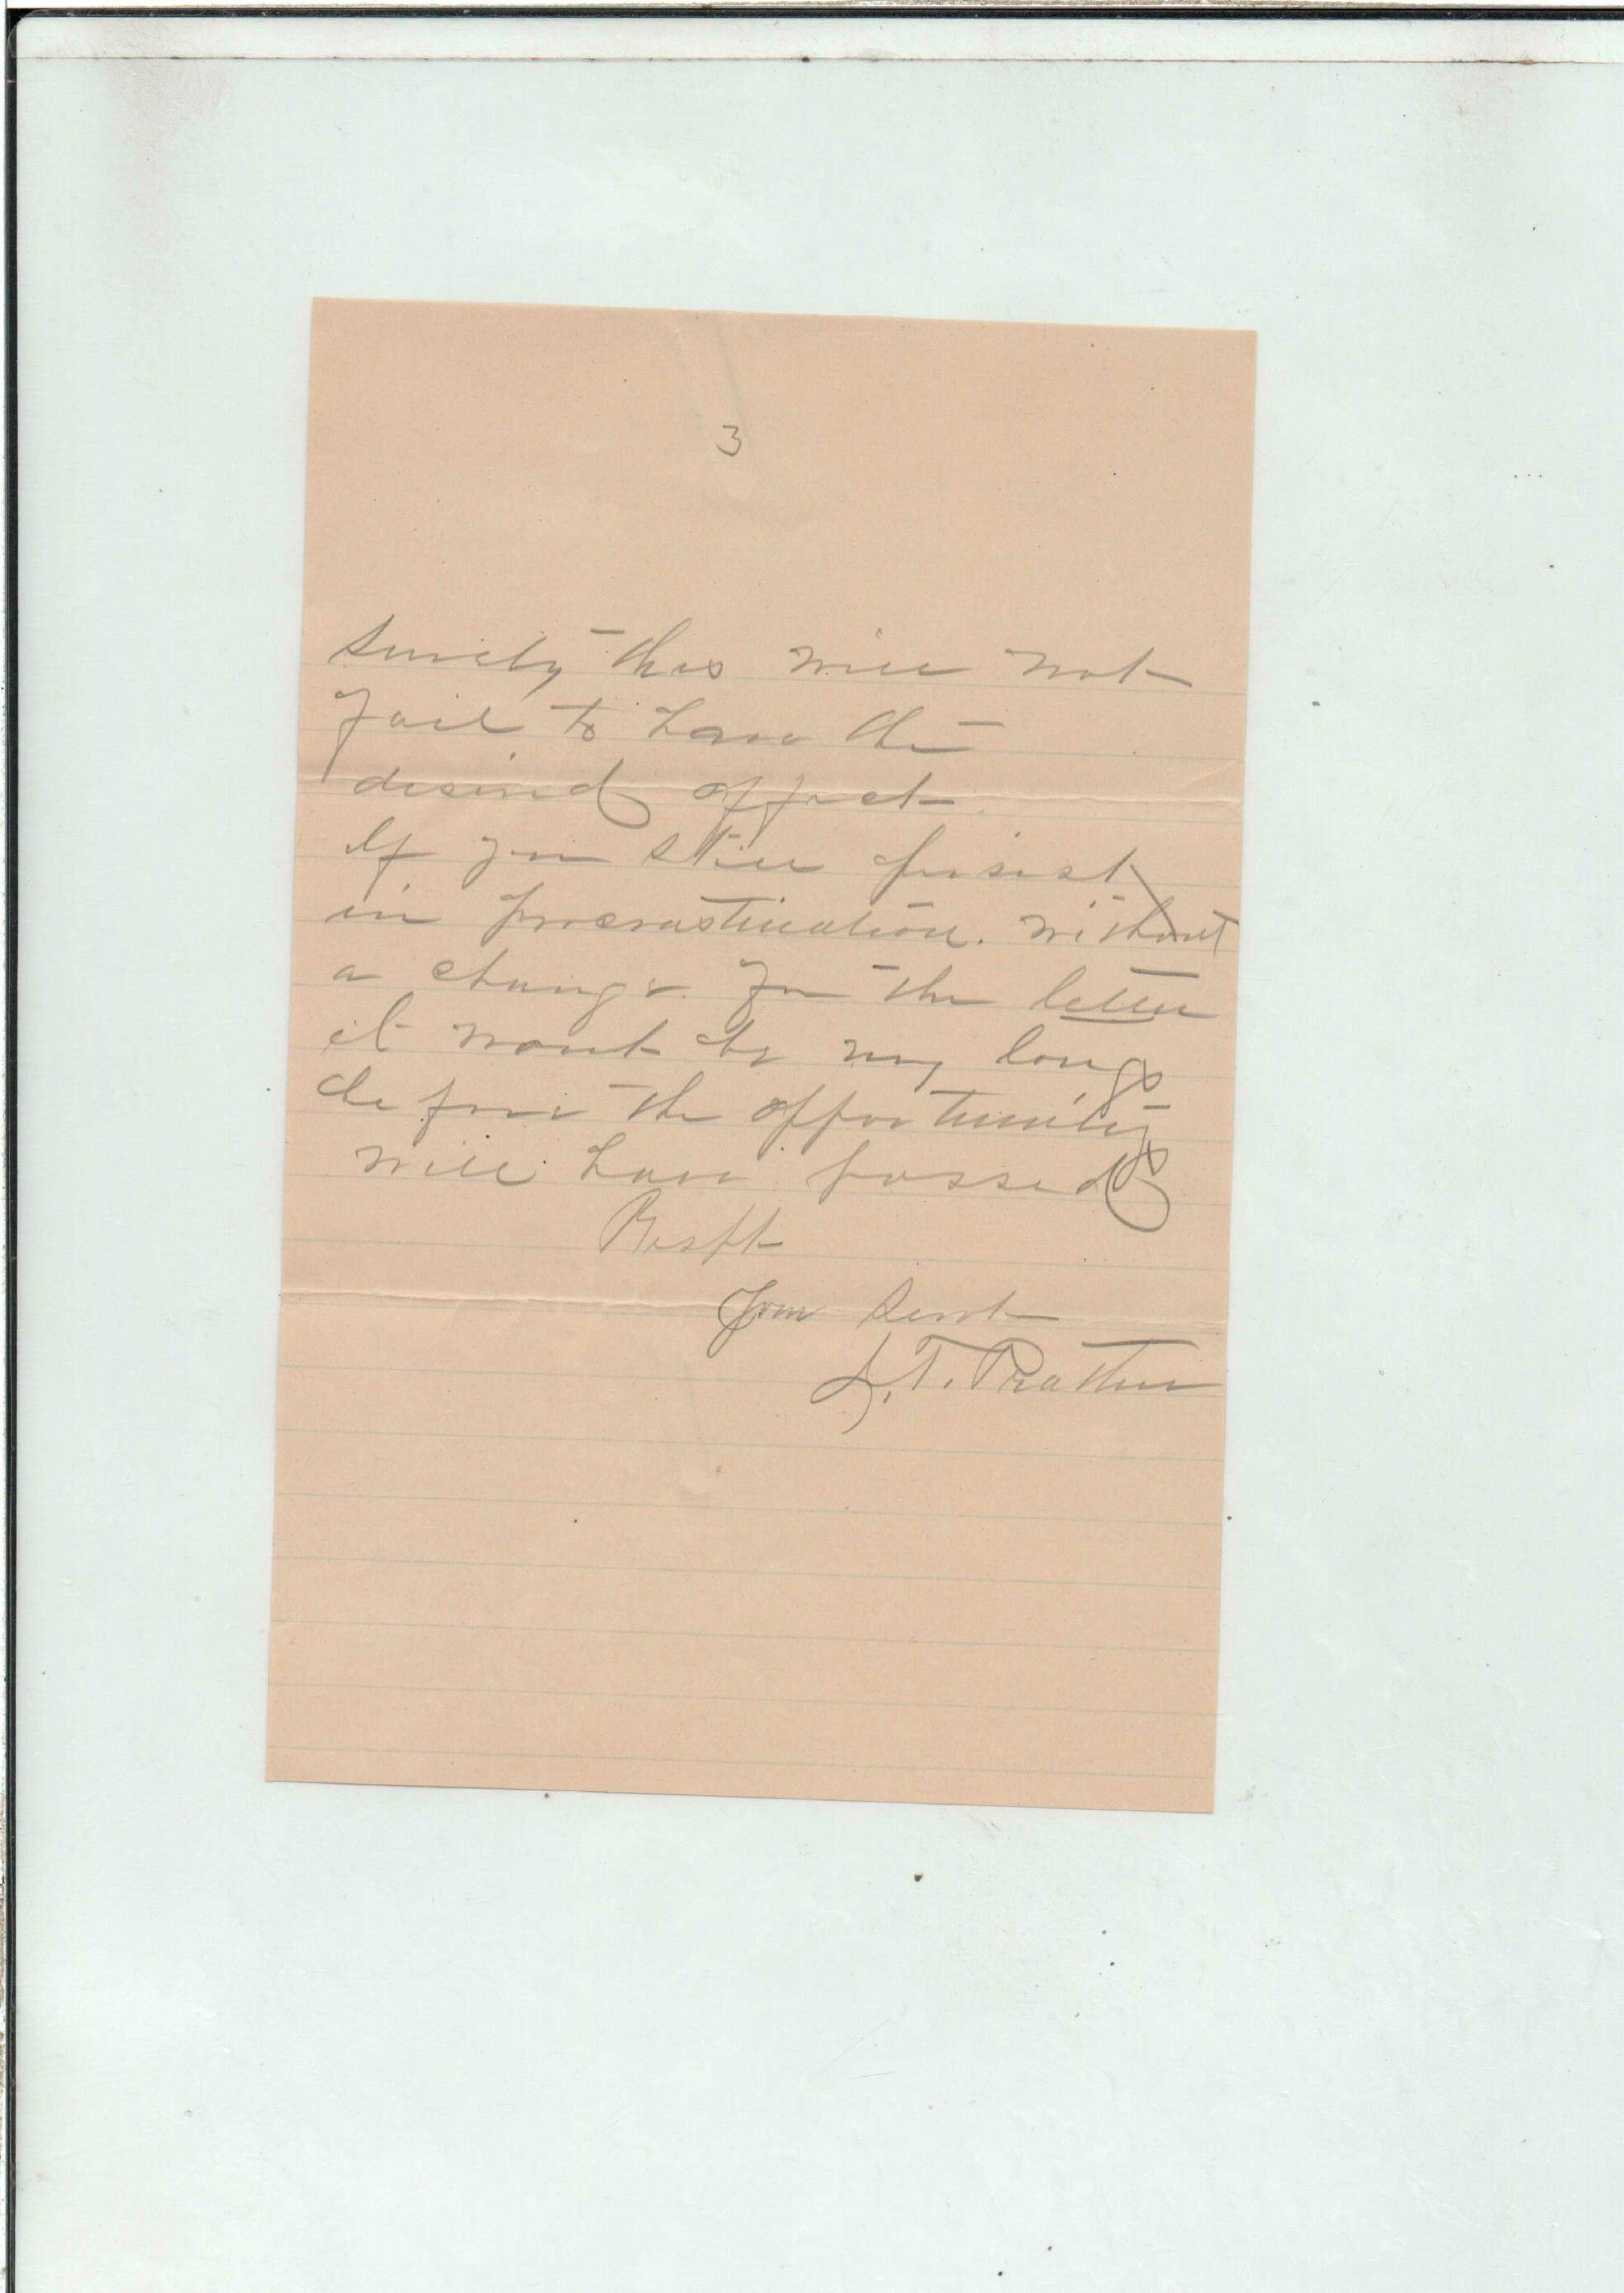 3
Surely this will not
fail to have the
desired effect.
If you still persist
in procrastination. without
a change for the better
it wont be very long
before the opportunity
will have passed
Respt
Your Servt
S. T. Prather